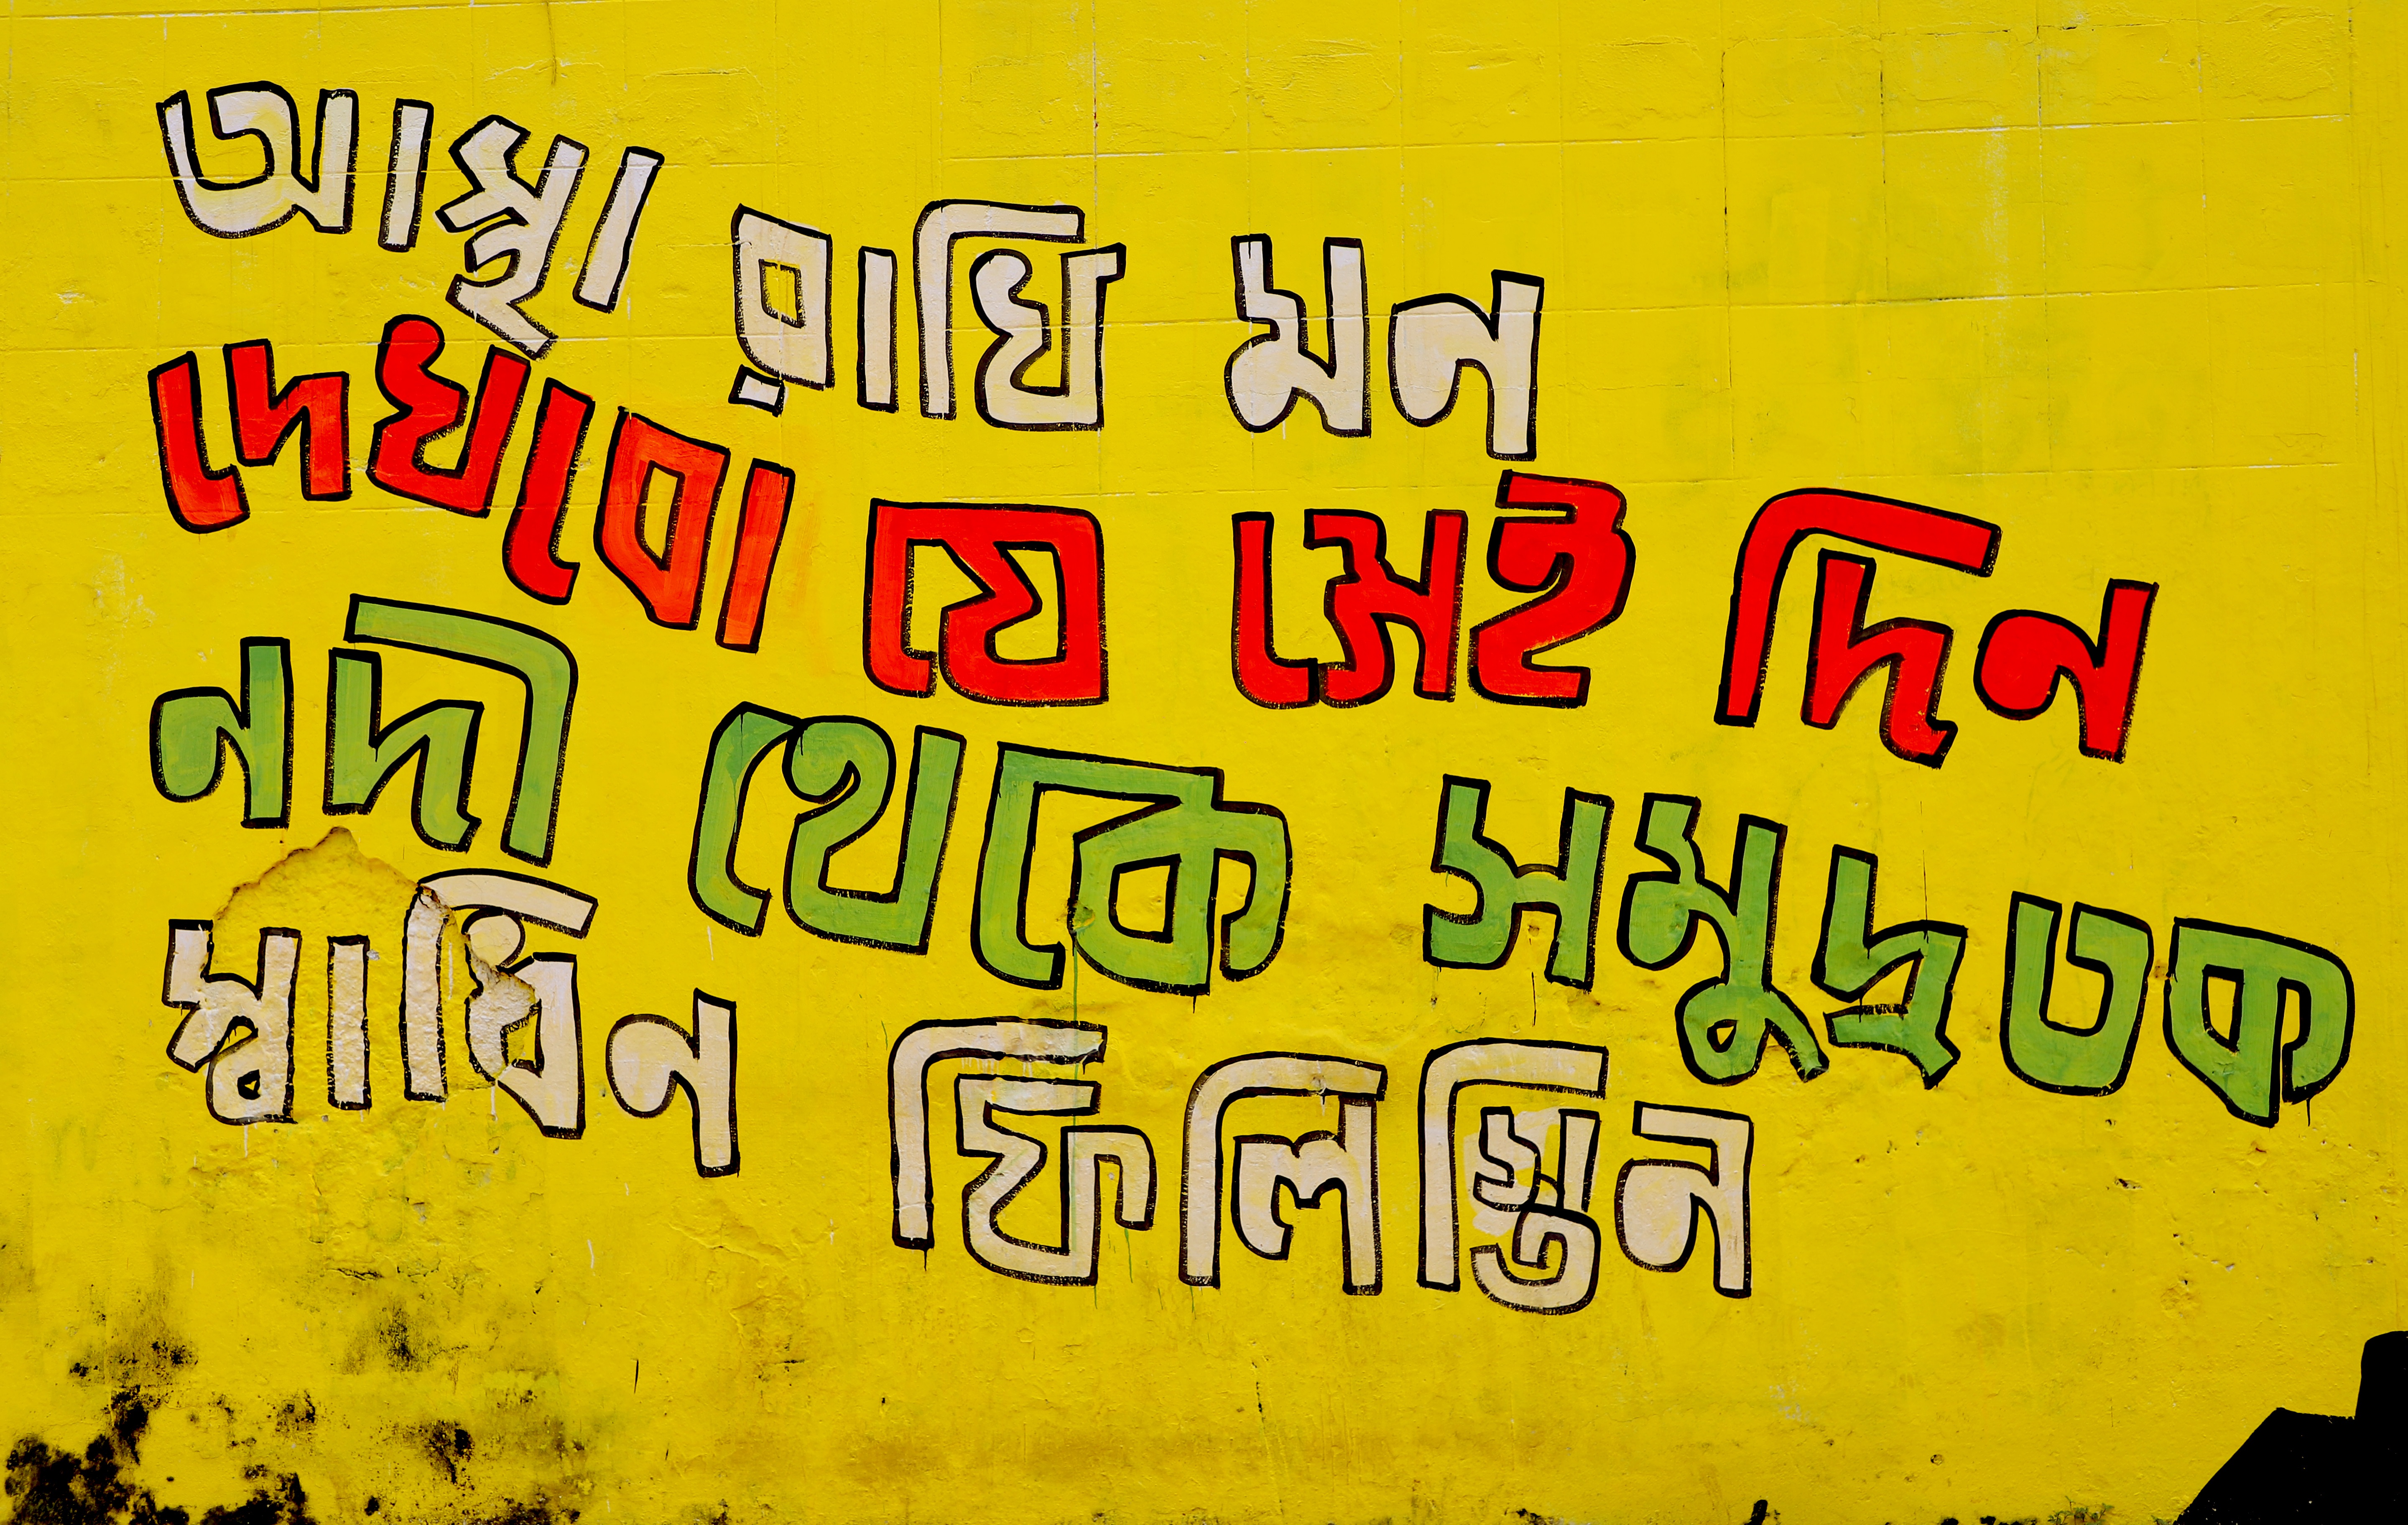 আস্থা রাখি মন
দেখবো যে সেই দিন
নদী থেকে সমুদ্র তক
স্বাধিন ফিলিস্তিন